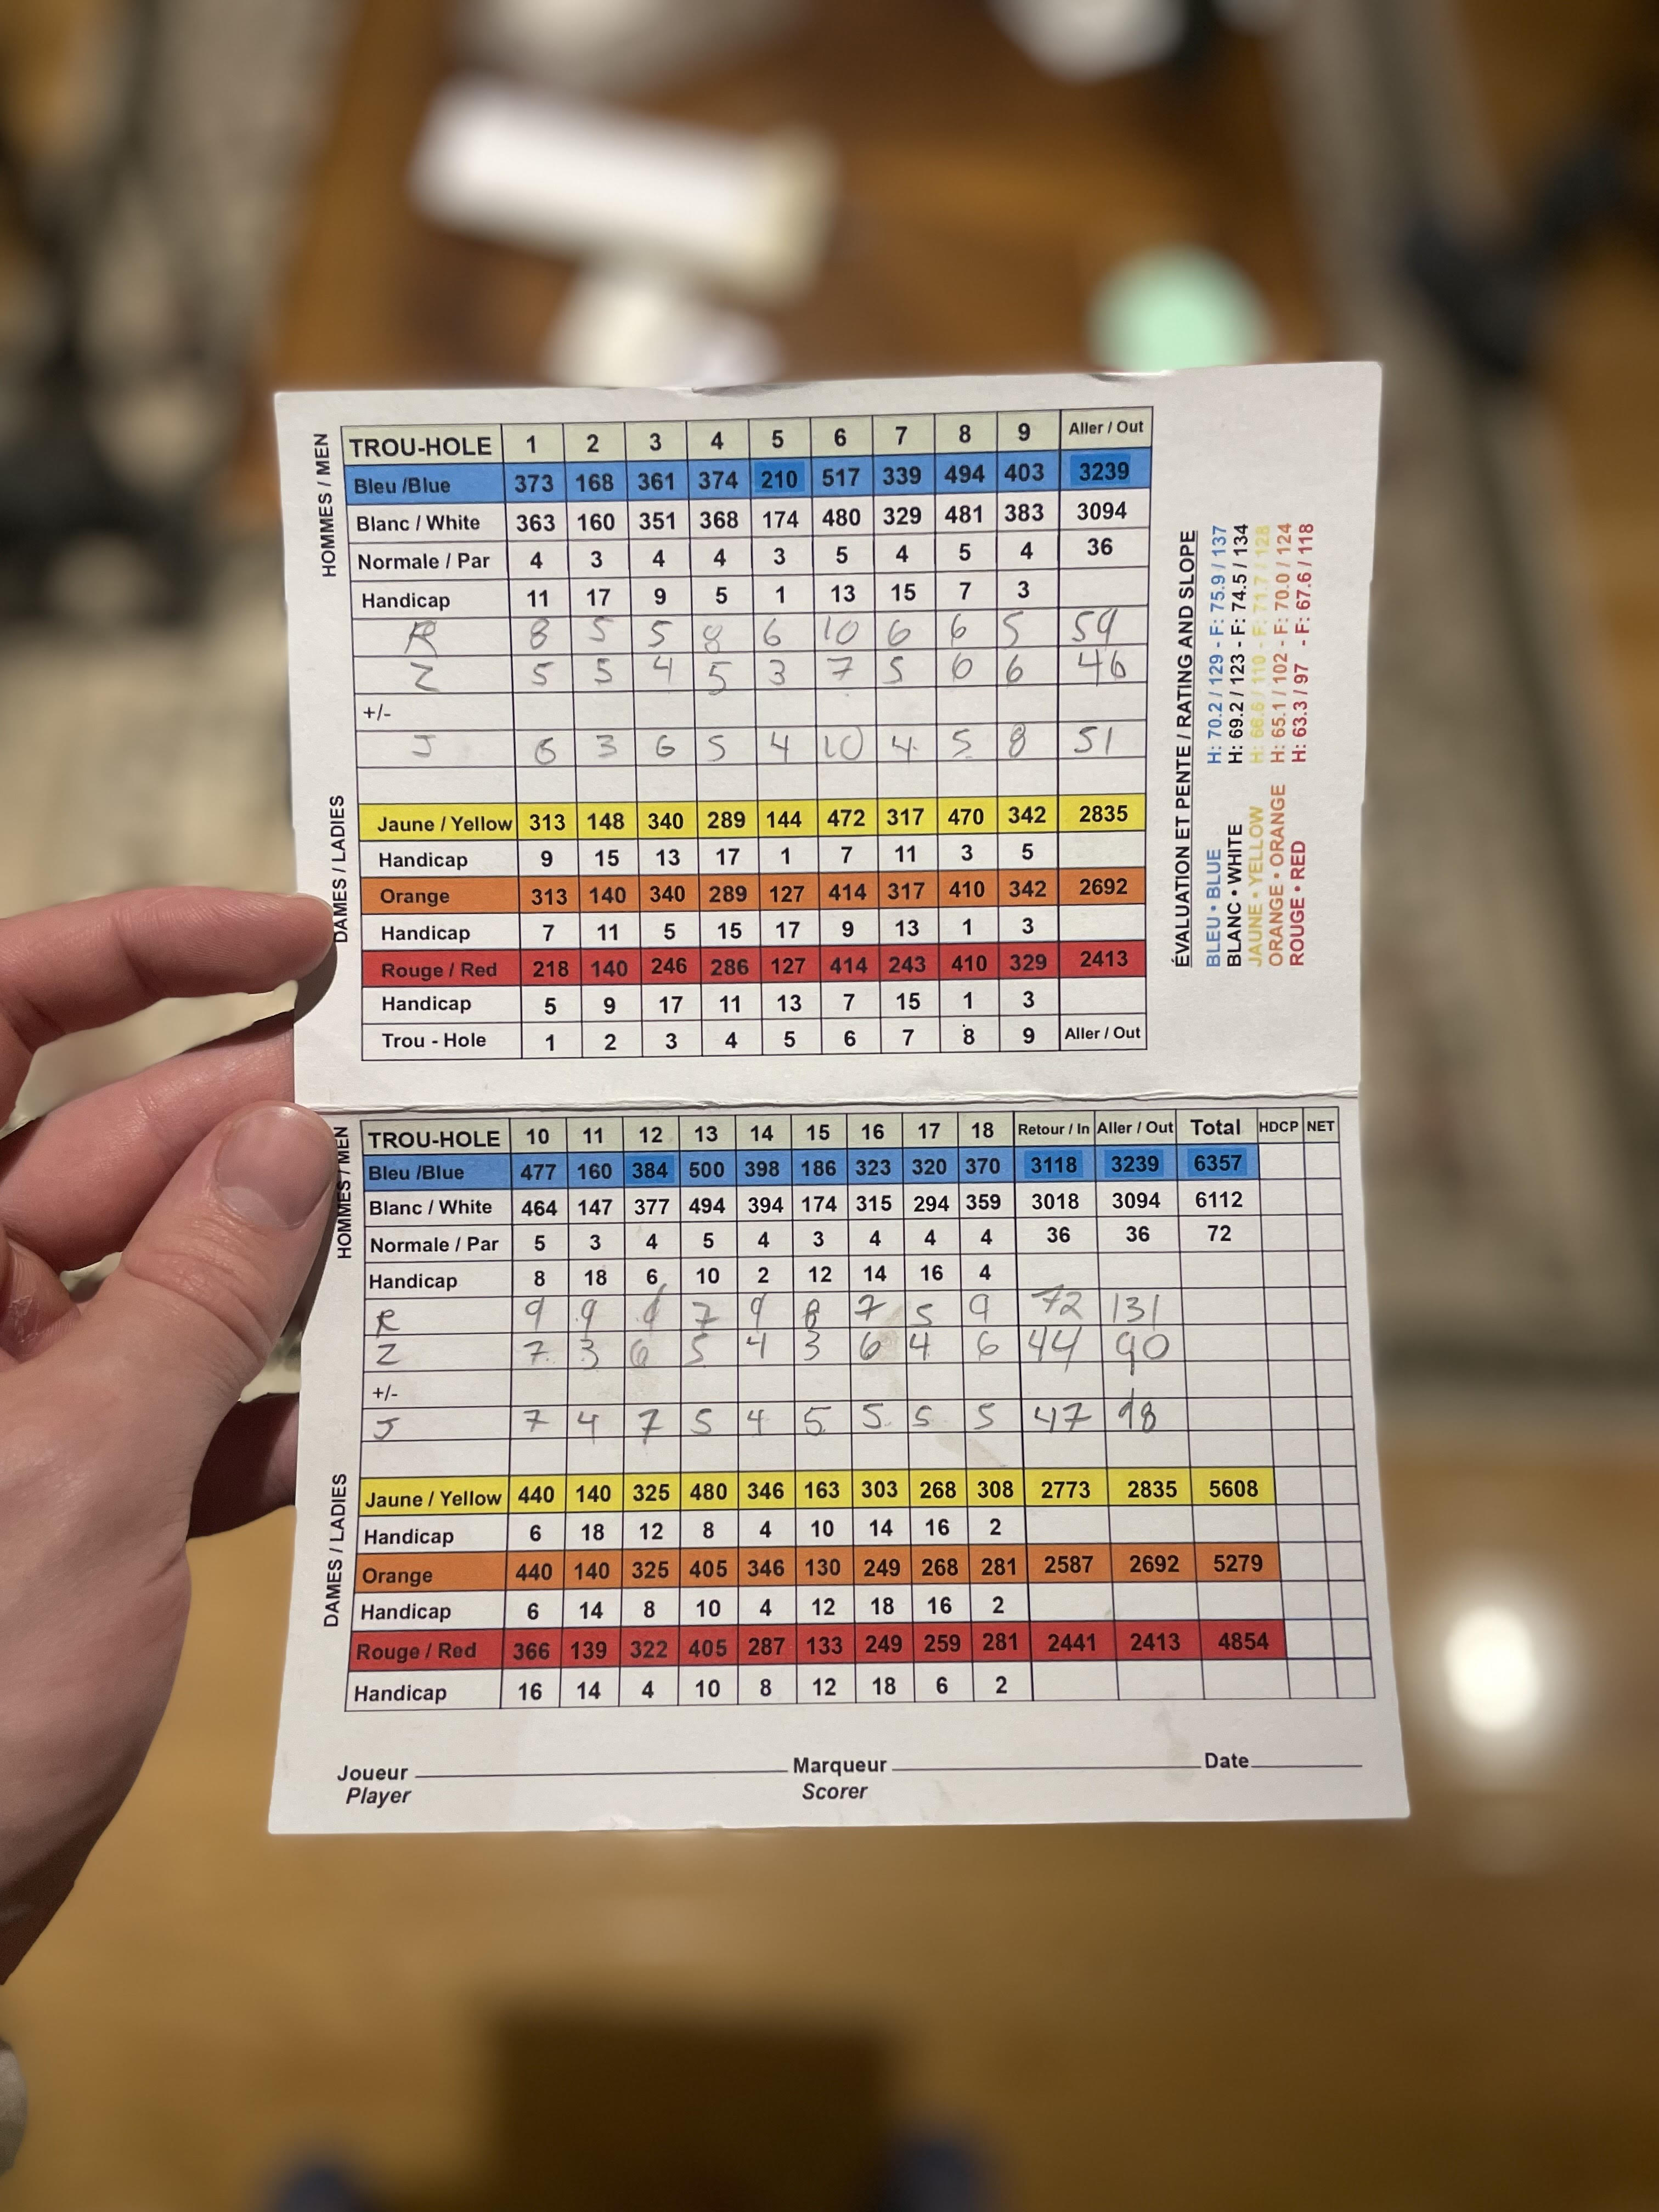 HOMMES / MEN
TROU-HOLE 1 2 3 4 5 6 7 8 9 Aller / Out
Bleu /Blue 373 168 361 374 210 517 339 494 403 3239
Blanc / White 363 160 351 368 174 480 329 481 383 3094
Normale / Par 4 3 4 4 3 5 4 5 4 36
Handicap 11 17 9 5 1 13 15 7 3
R 8 5 5 8 6 10 6 6 5 59
Z 5 5 4 5 3 7 5 6 6 46
+/-
J 6 3 6 5 4 10 4 5 8 51
DAMES / LADIES
Jaune / Yellow 313 148 340 289 144 472 317 470 342 2835
Handicap 9 15 13 17 1 7 11 3 5
Orange 313 140 340 289 127 414 317 410 342 2692
Handicap 7 11 5 15 17 9 13 1 3
Rouge / Red 218 140 246 286 127 414 243 410 329 2413
Handicap 5 9 17 11 13 7 15 1 3
Trou - Hole 1 2 3 4 5 6 7 8 9 Aller / Out
ÉVALUATION ET PENTE / RATING AND SLOPE
BLEU • BLUE H: 70.2 / 129 - F: 75.9 / 137
BLANC • WHITE H: 69.2 / 123 - F: 74.5 / 134
JAUNE • YELLOW H: 66.5 / 110 - F: 71.7 / 128
ORANGE • ORANGE H: 65.1 / 102 - F: 70.0 / 124
ROUGE • RED H: 63.3 / 97 - F: 67.6 / 118
HOMMES / MEN
TROU-HOLE 10 11 12 13 14 15 16 17 18 Retour / In Aller / Out Total HDCP NET
Bleu /Blue 477 160 384 500 398 186 323 320 370 3118 3239 6357
Blanc / White 464 147 377 494 394 174 315 294 359 3018 3094 6112
Normale / Par 5 3 4 5 4 3 4 4 4 36 36 72
Handicap 8 18 6 10 2 12 14 16 4
R 9 9 7 9 8 7 5 9 72 131
Z 7 3 6 5 4 3 6 4 6 44 90
+/-
J 7 4 7 5 4 5 5 5 5 47 98
DAMES / LADIES
Jaune / Yellow 440 140 325 480 346 163 303 268 308 2773 2835 5608
Handicap 6 18 12 8 4 10 14 16 2
Orange 440 140 325 405 346 130 249 268 281 2587 2692 5279
Handicap 6 14 8 10 4 12 18 16 2
Rouge / Red 366 139 322 405 287 133 249 259 281 2441 2413 4854
Handicap 16 14 4 10 8 12 18 6 2
Joueur Marqueur Date
Player Scorer